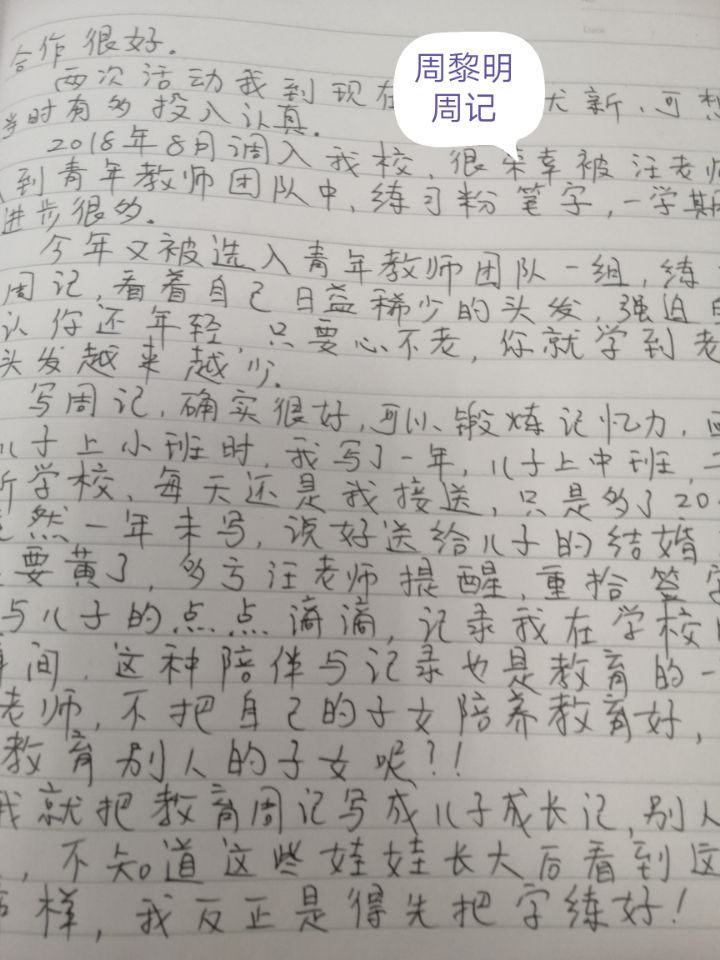 合作很好。
周黎明
周记
两次活动我到现在 尤新，可想
当时有多投入认真。
2018年8月调入我校，很荣幸被汪老师
到青年教师团队中，练习粉笔字，一学期
进步很多。
今年又被选入青年教师团队一组，练
周记，看着自己日益稀少的头发，强迫
认你还年轻，只要心不老，你就学到老
头发越来越少。
写周记，确实很好，可以锻炼记忆力，
儿子上小班时，我写了一年，儿子上中班，
新学校，每天还是我接送，只是多了20
竟然一年未写，说好送给儿子的结婚
要黄了，多亏汪老师提醒，重拾签字
与儿子的点点滴滴，记录我在学校
间，这种陪伴与记录也是教育的一
老师，不把自己的子女陪养教育好，
教育别人的子女呢？！！
我就把教育周记写成儿子成长记，别人
，不知道这些娃娃长大后看到这
样，我反正是得先把字练好！